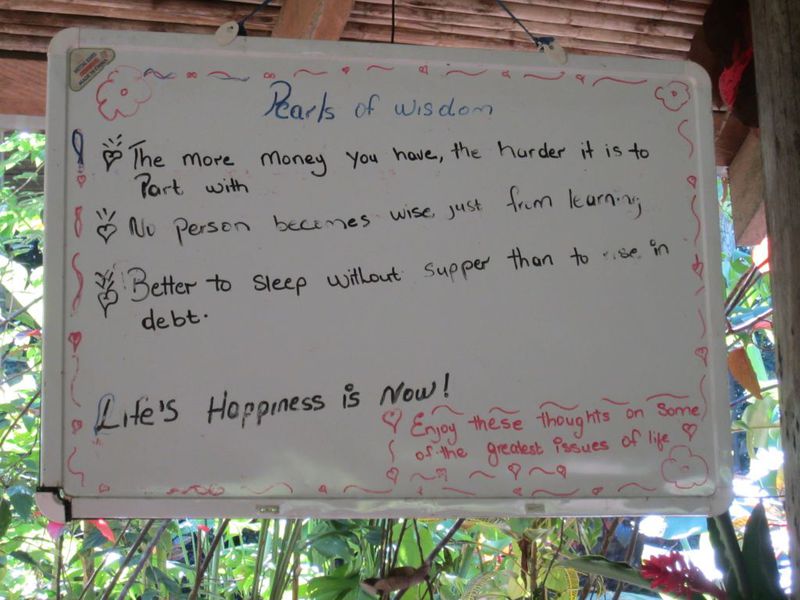 Pearls of wisdom
The more money you have, the harder it is to
Part with
No person becomes wise just from learning
Better to sleep without supper than to rise in
debt.
Life's Happiness is Now!
Enjoy these thoughts on some
of the greatest issues of life